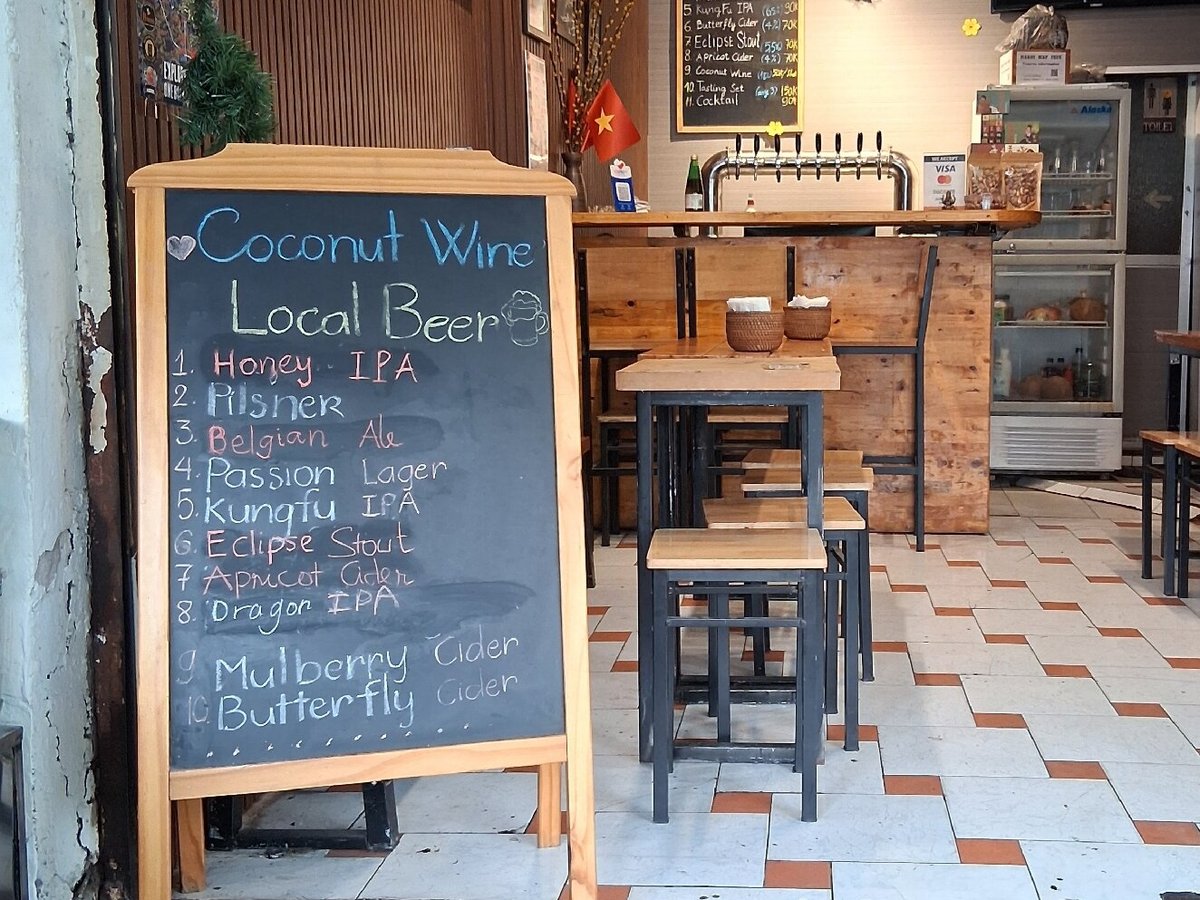 Coconut Wine
Local Beer
1. Honey IPA
2. Pilsner
3. Belgian Ale
4. Passion Lager
5. Kungfu IPA
6. Eclipse Stout
7 Apricot Cider
8. Dragon IPA
9 Mulberry Cider
10. Butterfly Cider
5 KungFu IPA 90K
6 Butterfly Cider (4%) 70K
7 Eclipse Stout 55K
8 Apricot Cider (4%) 70K
9 Coconut Wine
10. Tasting Set 150K
11. Cocktail 90K
WE ACCEPT
VISA
Alaska
TOILET